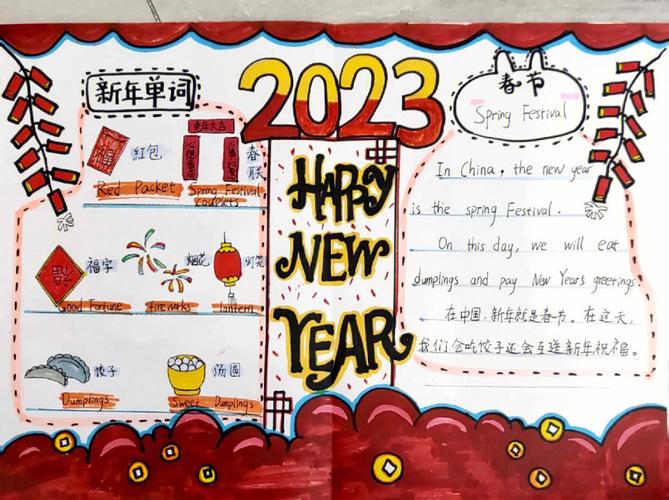 新年单词
2023
春节
Spring Festival
红包
春联
Red Packet
Spring Festival couplets
福字
烟花
灯笼
Good Fortune
fireworks
lantern
饺子
汤圆
Dumplings
Sweet Dumplings
HAPPY
NEW
YEAR
In China, the new year
is the spring Festival.
On this day, we will eat
dumplings and pay New Year's greetings.
在中国，新年就是春节。在这天，
我们会吃饺子还会互送新年祝福。